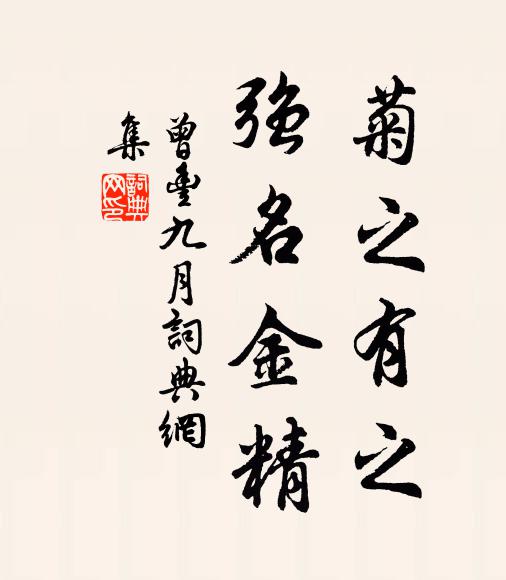 菊之有之
强名金精
曾豐九月詞典網
集
詞典网印